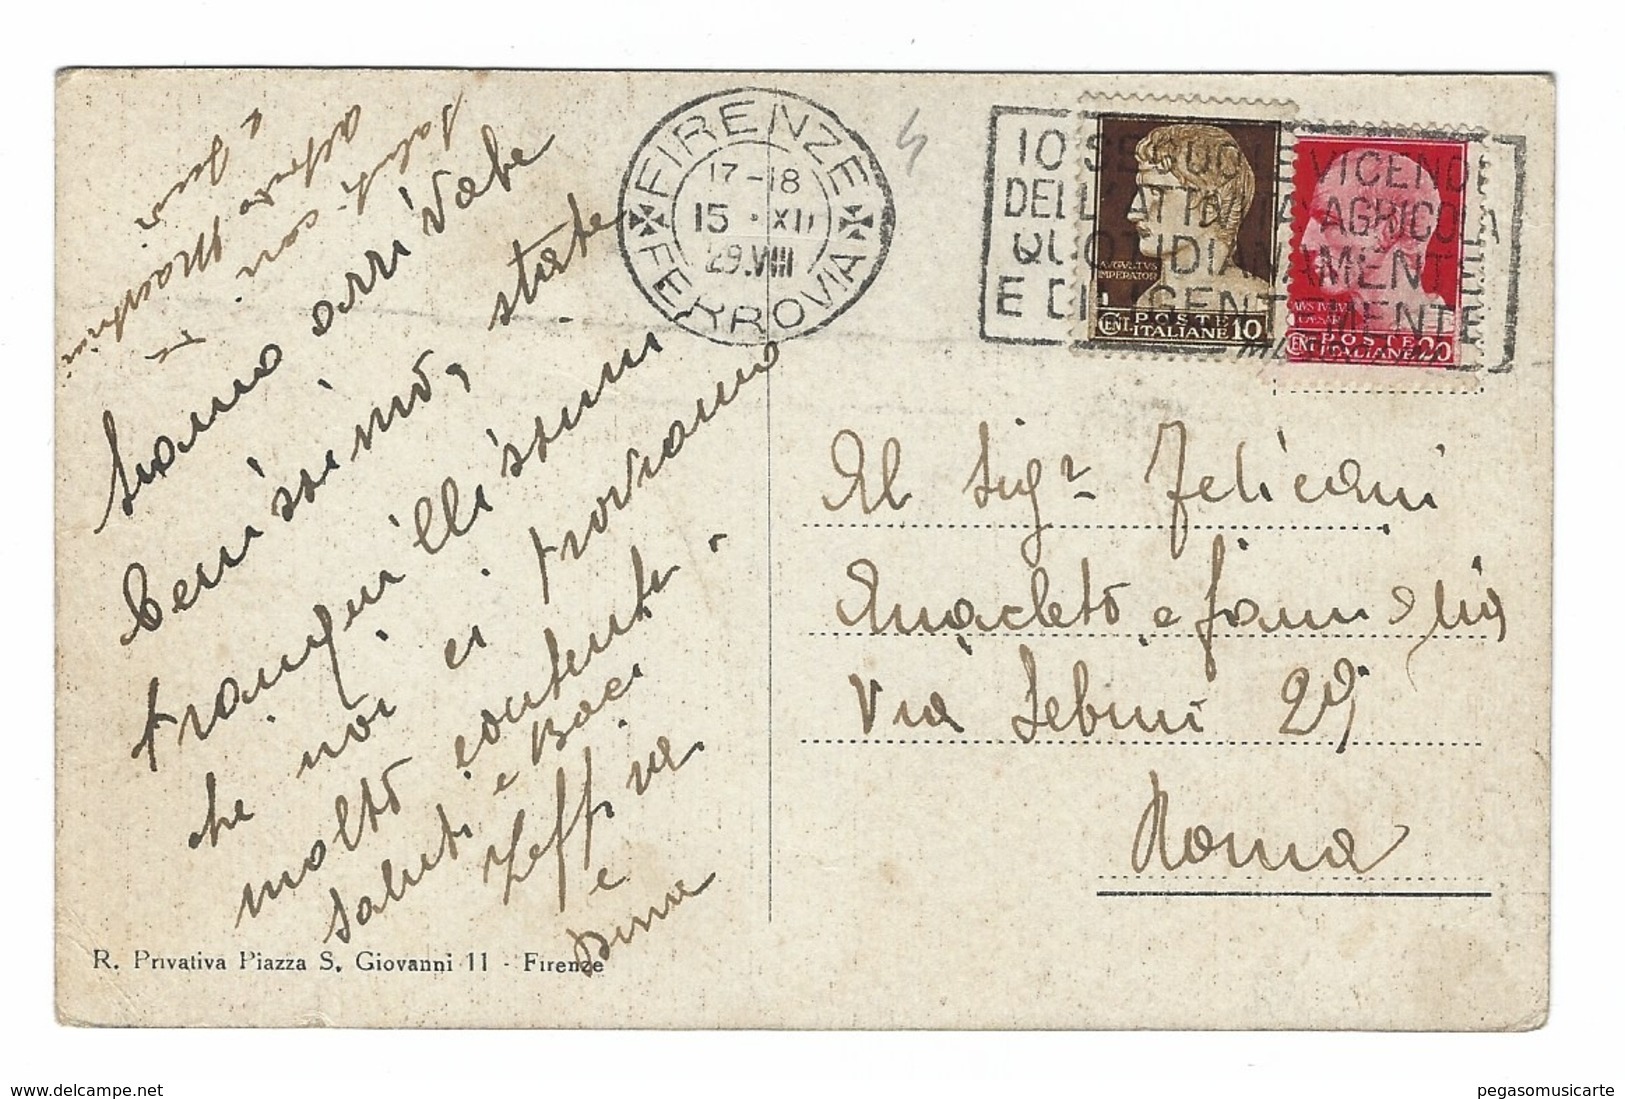 Siamo arrivate
benissimo, state
tranquillissimi
che noi ci troviamo
molto contente.
Saluti e Baci
Zeffira
e
Dina
saluti cari
alfredo
e
R. Privativa Piazza S. Giovanni 11 - Firenze
FIRENZE
17-18
15 · XII
29.VIII
FERROVIA
IO SEGUO LE VICENDE
DELL'ATTIVITA' AGRICOLA
QUOTIDIANAMENTE
E DILIGENTEMENTE
AVGVSTVS
IMPERATOR
CENT. POSTE ITALIANE 10
CAESAR
CENT. POSTE ITALIANE 20
Al Sigr Feliciani
Anacleto e famiglia
Via Sebini 29
Roma
pegasomusicarte
www.delcampe.net